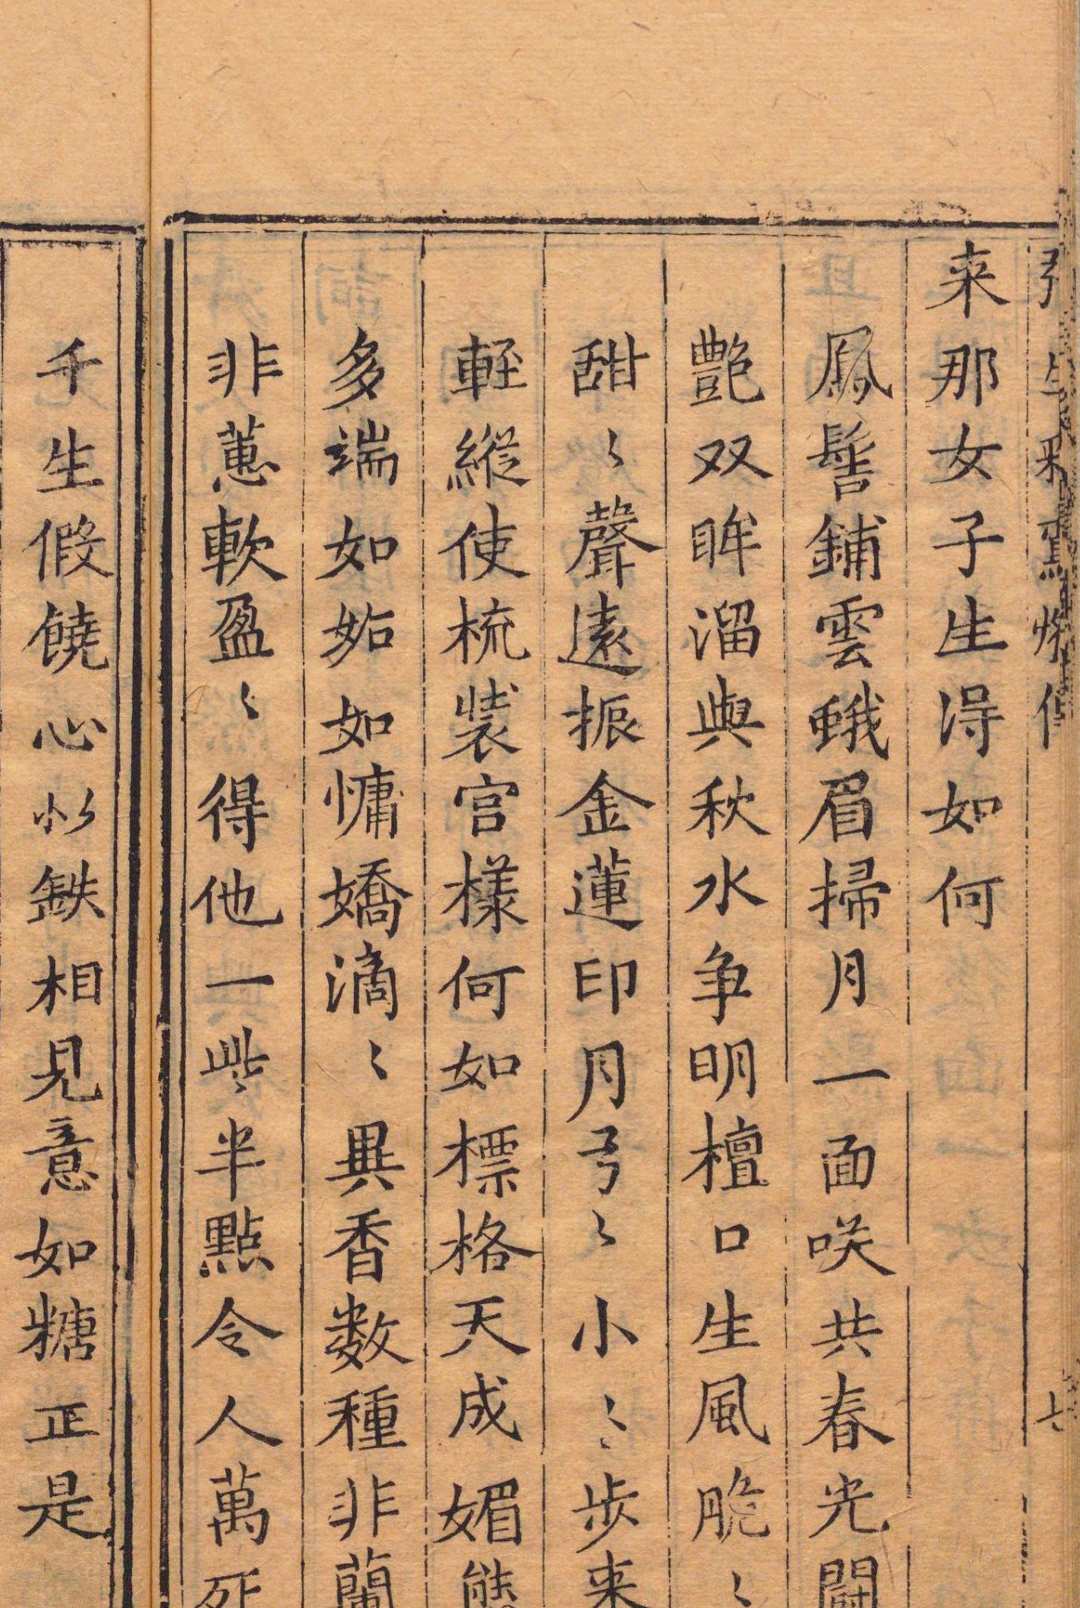 来那女子生淂如何
鳳髻鋪雲蛾眉掃月一面咲共春光鬪
艷双眸溜與秋水争明檀口生風脆〻
甜〻聲遠振金蓮印月弓〻小〻步来
輕縱使梳裝宮樣何如標格天成媚態
多端如妬如慵嬌滴〻異香数種非蘭
非蕙軟盈〻得他一些半點令人萬死
千生假饒心似鉄相見意如糖正是